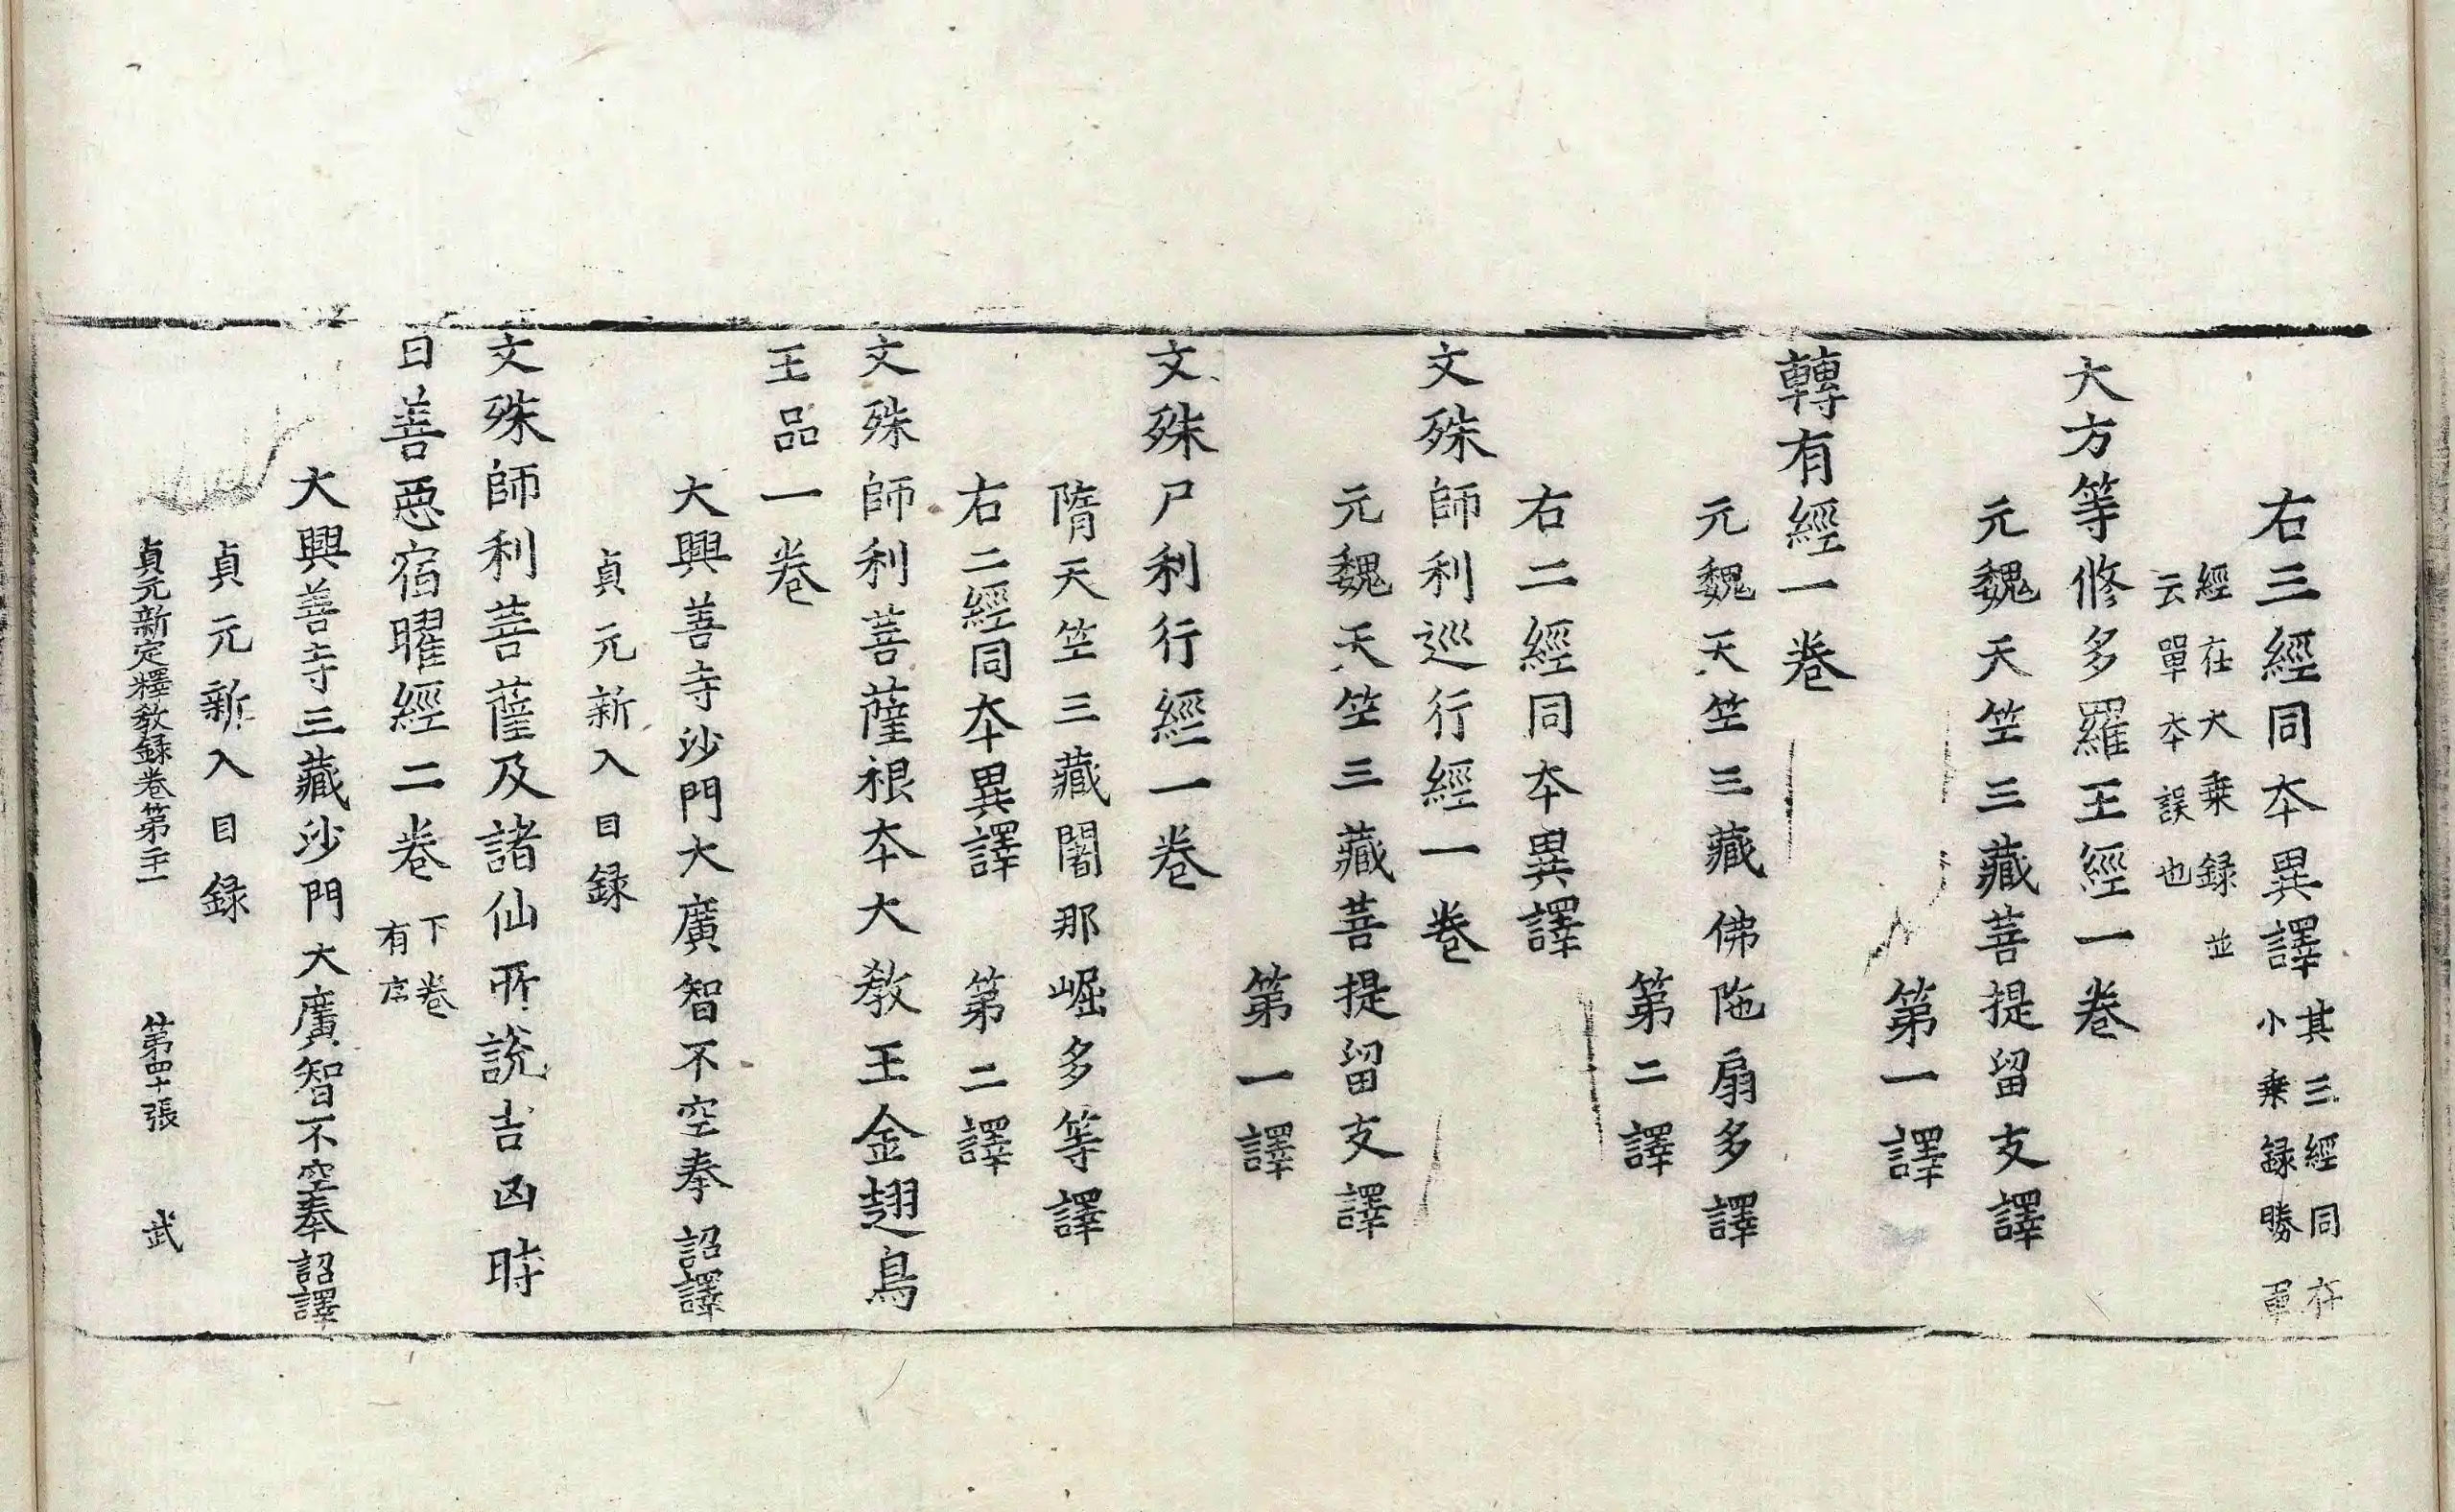 右三經同夲異譯其三經同存小乗録勝軍
經在大乗録並云單夲誤也
大方等修多羅王經一卷
元魏天竺三藏菩提留支譯
第一譯
轉有經一卷
元魏天竺三藏佛陁扇多譯
第二譯
右二經同夲異譯
文殊師利巡行經一卷
元魏天竺三藏菩提留支譯
第一譯
文殊尸利行經一卷
隋天竺三藏闍那崛多等譯
右二經同夲異譯 第二譯
文殊師利菩薩根夲大敎王金翅鳥
王品一卷
大興善寺沙門大廣智不空奉 詔譯
貞元新入目録
文殊師利菩薩及諸仙所說吉凶時
日善惡宿曜經二卷下卷有序
大興善寺三藏沙門大廣智不空奉 詔譯
貞元新入目録
貞元新定釋敎録卷第二十一 第四十張 武